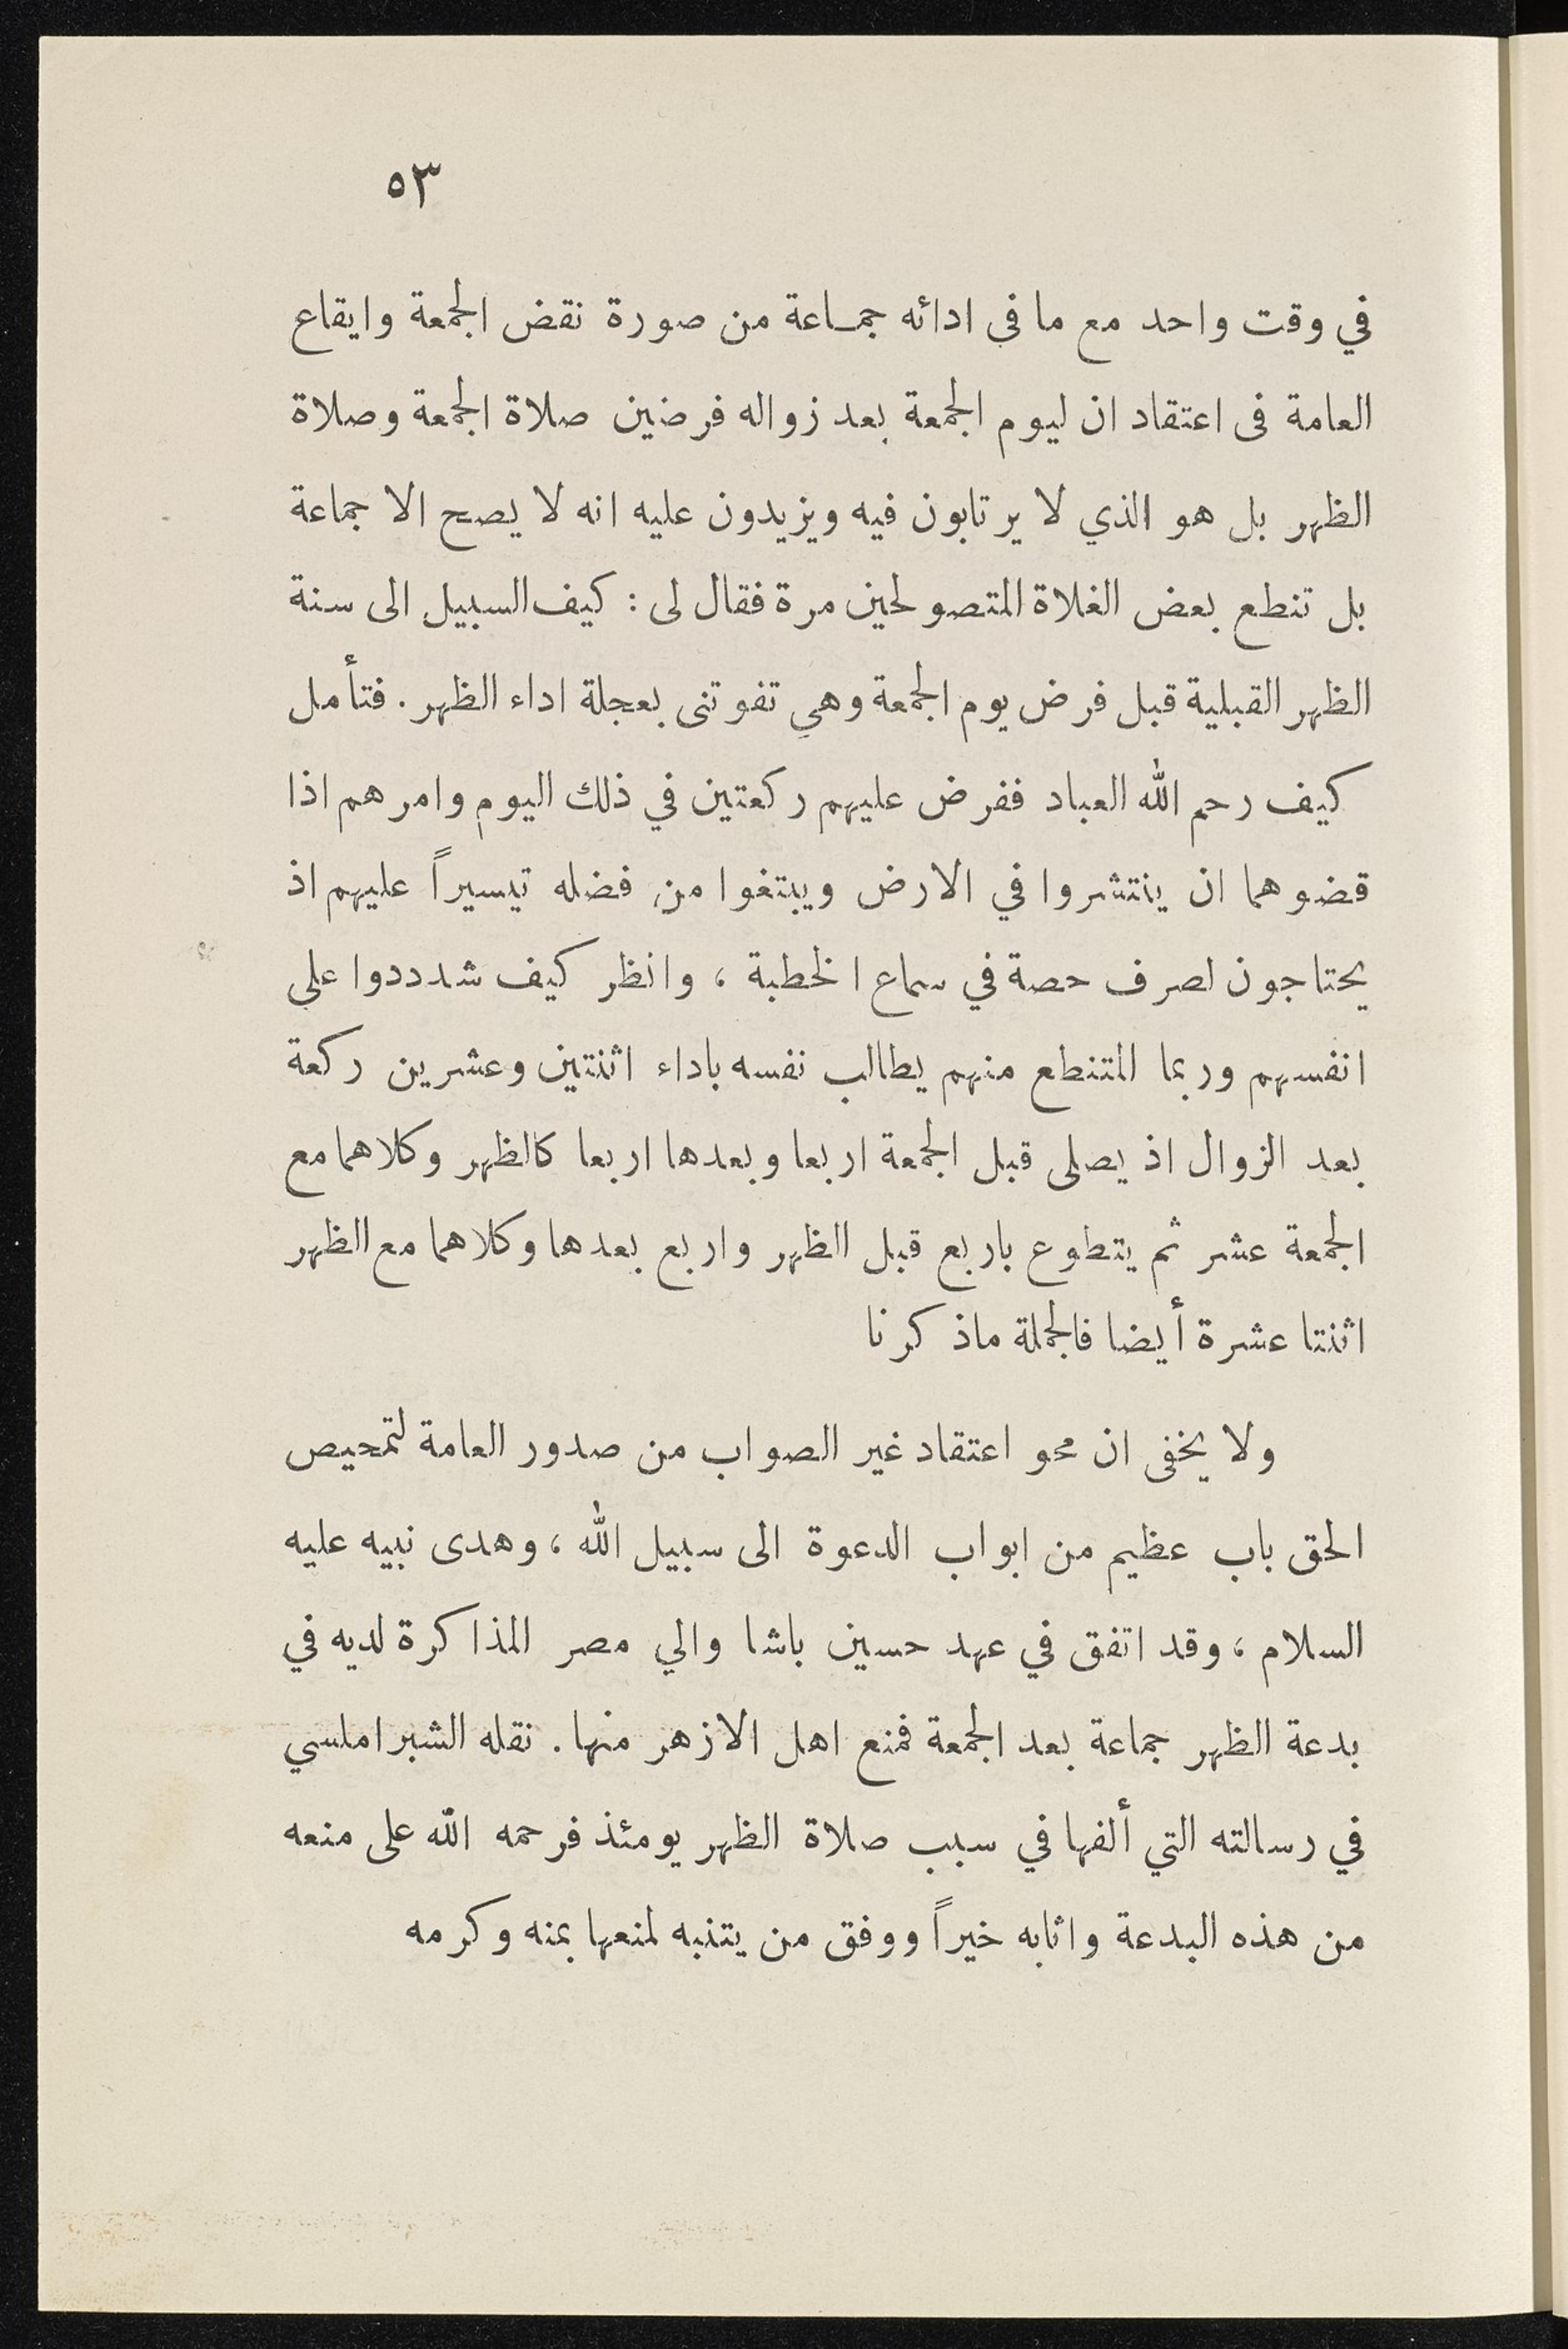 ٥٣
في وقت واحد مع ما فى ادائه جمـاعة من صورة نقض الجمعة وايقاع
العامة فى اعتقاد ان ليوم الجمعة بعد زواله فرضين صلاة الجمعة وصلاة
الظهر بل هو الذي لا يرتابون فيه ويزيدون عليه انه لا يصح الا جماعة
بل تنطع بعض الغلاة المتصولحين مرة فقال لى : كيف السبيل الى سنة
الظهر القبلية قبل فرض يوم الجمعة وهي تفوتنى بعجلة اداء الظهر . فتأمل
كيف رحم الله العباد ففرض عليهم ركعتين في ذلك اليوم وامرهم اذا
قضوهما ان ينتشروا في الارض ويبتغوا من فضله تيسيراً عليهم اذ
يحتاجون لصرف حصة في سماع الخطبة ، وانظر كيف شدددوا على
انفسهم وربما المتنطع منهم يطالب نفسه باداء اثنتين وعشرين ركعة
بعد الزوال اذ يصلى قبل الجمعة اربعا وبعدها اربعا كالظهر وكلاهما مع
الجمعة عشر ثم يتطوع باربع قبل الظهر واربع بعدها وكلاهما مع الظهر
اثنتا عشرة أيضا فالجملة ماذكرنا
ولا يخفى ان محو اعتقاد غير الصواب من صدور العامة لتمحيص
الحق باب عظيم من ابواب الدعوة الى سبيل الله ، وهدى نبيه عليه
السلام ، وقد اتفق في عهد حسين باشا والي مصر المذاكرة لديه في
بدعة الظهر جماعة بعد الجمعة فمنع اهل الازهر منها . نقله الشبراملسي
في رسالته التي ألفها في سبب صلاة الظهر يومئذ فرحمه الله على منعه
من هذه البدعة واثابه خيراً ووفق من يتنبه لمنعها بمنه وكرمه